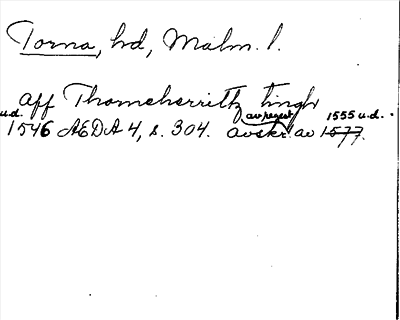 Torna, hd, Malm. l.
aff Thorneherritz tingh
u.d. av regest 1555 u.d.
1546 ÆDA 4, s. 304. avskr. av 1577.